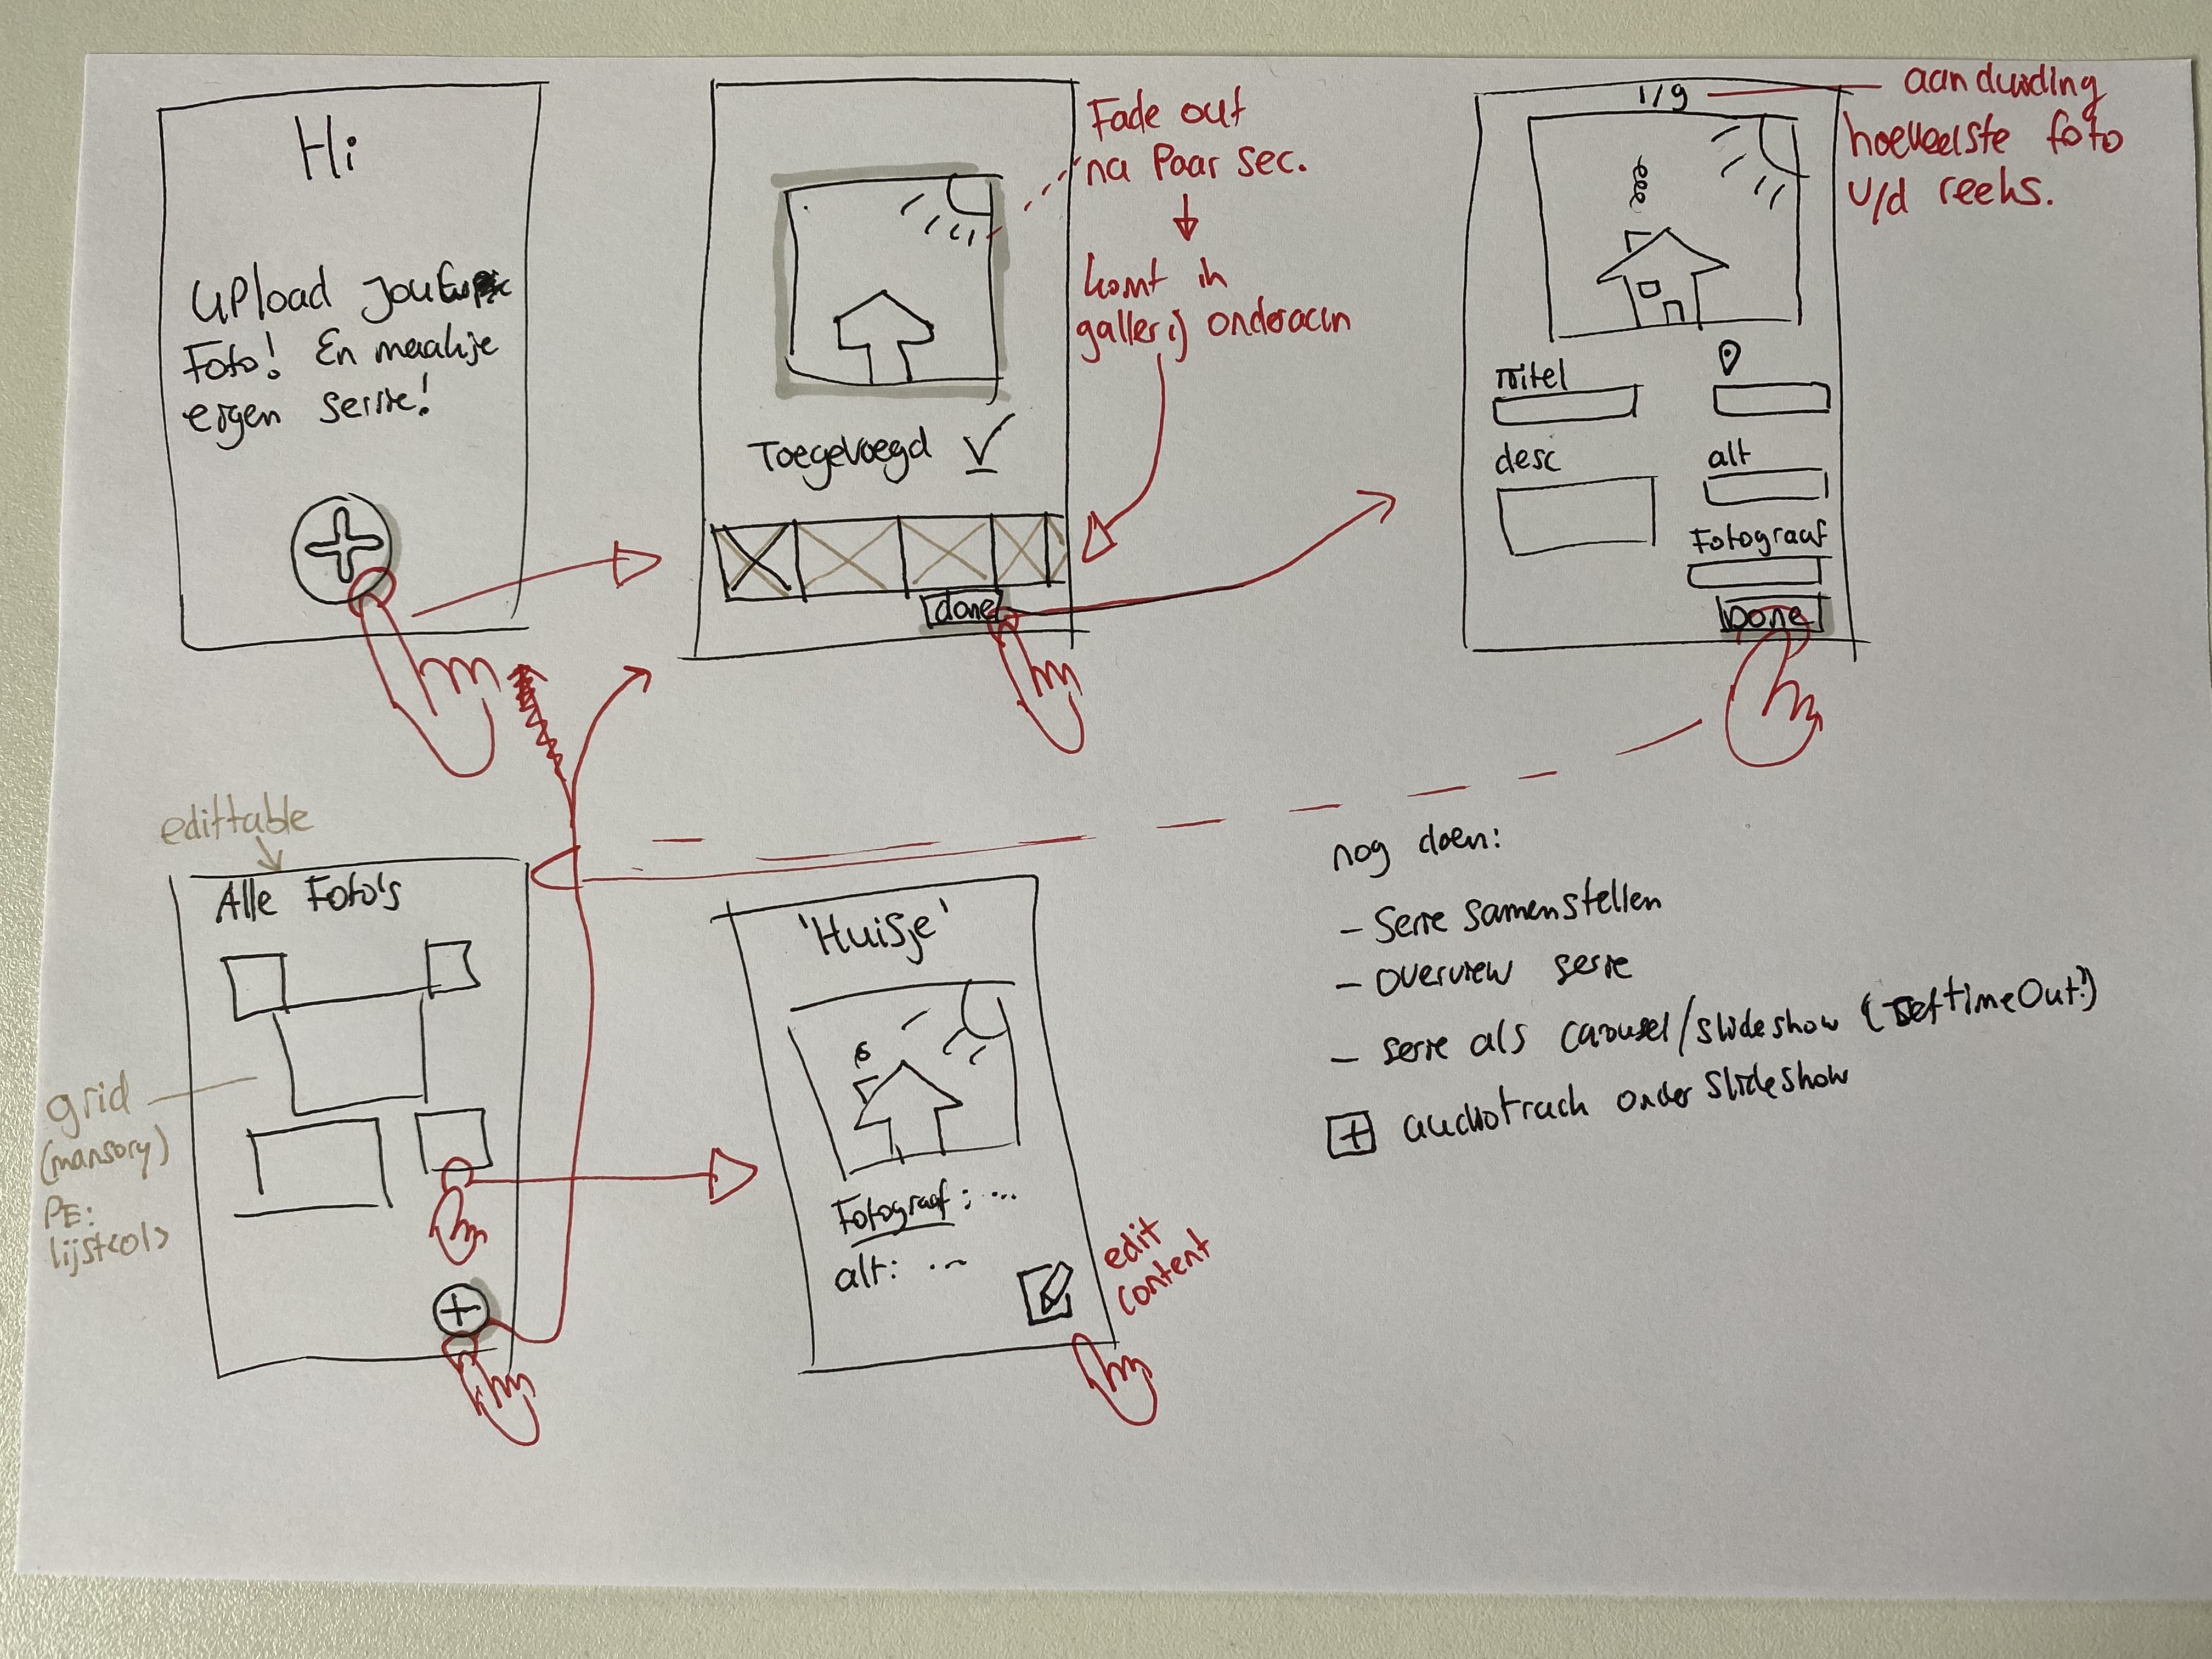 Hi
Upload
Foto! En maak je
eigen serie!
Toegevoegd
done
Fade out
na Paar sec.
komt in
gallerij onderaan
1/9
aanduiding
hoeveelste foto
v/d reeks.
Titel
desc
alt
Fotograaf
Done
edittable
Alle Foto's
grid
(mansory)
PE:
lijst<ol>
'Huisje'
Fotograaf: ...
alt: ...
edit
content
nog doen:
- Serie samenstellen
- overview serie
- serie als carousel/slideshow (setTimeOut?)
+ audiotrack onder slideshow